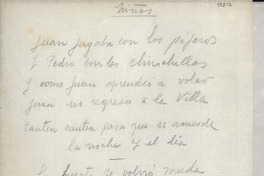 Niños
Juan jugaba con los pájaros
Y Pedro con las chinchillas
Y como Juan aprendió a volar
Juan no regresó a la Villa
Canten canten para que se acuerde
la noche y el día
se volvió muda